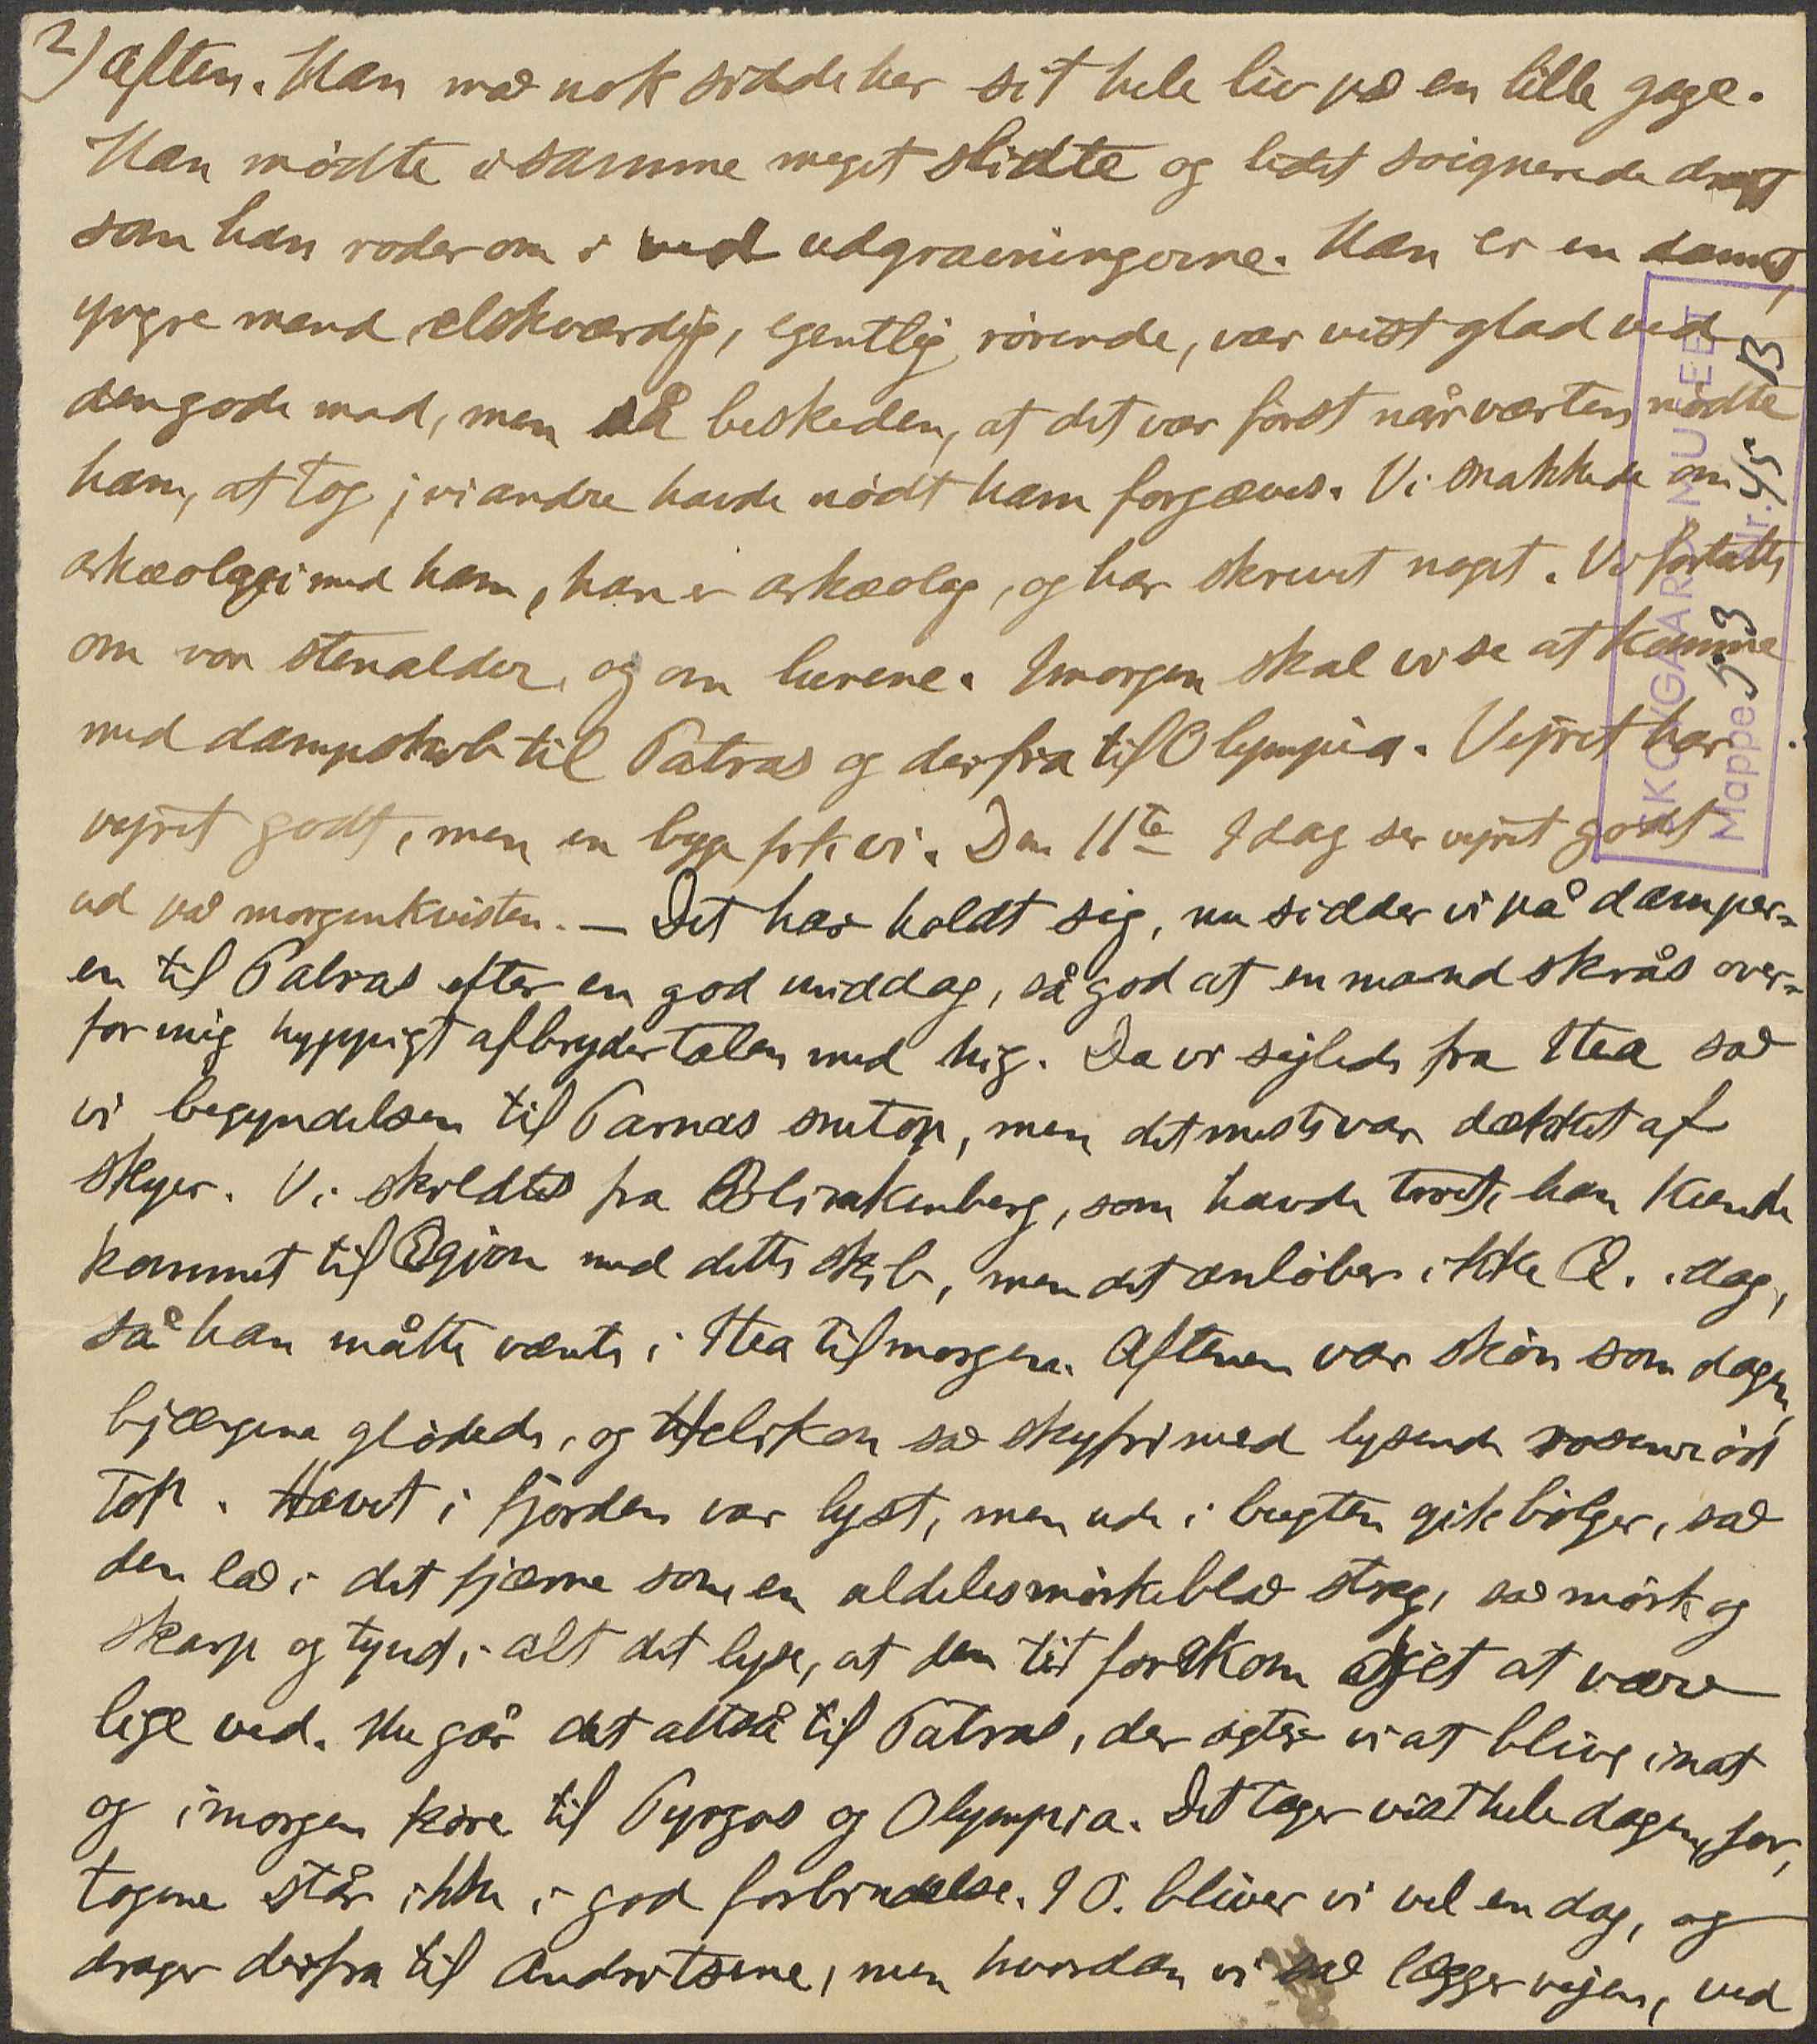 2) aften. Han må nok sidde her sit hele liv på en lille gage.
Han mødte i samme meget slidte og lidet soignerede dragt
som han roder om i ved udgravningerne. Han er en dannet,
yngre mand, elskværdig, egentlig rørende, var vist glad ved
den gode mad, men så beskeden, at det var først når værten nødte
ham, at tog, vi andre havde nødt ham forgæves. Vi snakkede om
arkæologi med ham, han er arkæolog, og har skrevet noget. Vi fortalte
om vor stenalder, og om lurene. Imorgen skal vi se at komme
med dampskib til Patras og derfra til Olympia. Vejret har
vejret godt, men en byge fik vi. Den 11te Idag ser vejret godt
ud på morgenkvisten. — Det har holdt sig, nu sidder vi på damper=
en til Patras efter en god middag, så god at en mand skrås over=
for mig hyppigt afbryder talen med hig. Da vi sejlede fra Itea så
vi begyndelsen til Parnas snetop, men det meste var dækket af
skyer. Vi skildtes fra Blinkenberg, som havde troet, han kunde
kommet til Ægion med dette skib, men det anløber ikke Æ. idag,
så han måtte vente i Itea til morgen. Aftenen var skøn som dagen,
bjærgene glødede, og Helikon så skyfri med lysende rosenrød
top. Havet i fjorden var lyst, men ude i bugten gik bølger, så
den lå i det fjærne som en aldeles mørkeblå streg, så mørk og
skarp og tynd i alt det lyse, at den tit forekom øjet at være
lige ved. Nu går det altså til Patras, der agter vi at blive inat
og imorgen køre til Pyrgos og Olympia. Det tager vist hele dagen, for,
togene står ikke i god forbindelse. I O. bliver vi vel en dag, og
drager derfra til Andritsene, men hvordan vi så lægger vejen, ved
SKOVGAARD MUSEET
Mappe 53 Nr. 4/5 B